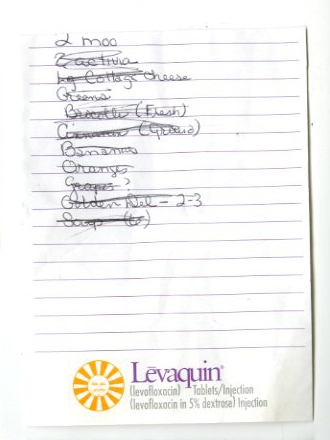 2 moo
2 activia
Lg Cottage cheese
Greens
Brocolli (Fresh)
Cinnamon (Ground)
Bananas
Oranges
Grapes ?
Golden Del - 2-3
Soup
Levaquin®
(levofloxacin) Tablets/Injection
(levofloxacin in 5% dextrose) Injection